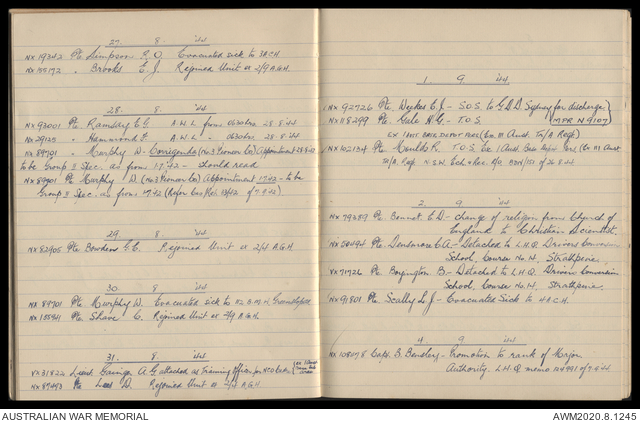 27. 8 '44
NX19342 Pte Simpson R.O. Evacuated sick to 3 A.C.H.
NX155172 " Brooks E.J. Rejoined Unit ex 2/9 A.G.H.
28. 8 '44
NX93001 Pte Ramsay E.G. A.W.L. from 0630 hrs 28-8-44
NX29125 " Hammond F. A.W.L. " 0630 hrs 28-8-44
NX89701 " Murphy D. - Corrigenda (No 3 Pioneer Co) Appointment 28-8-43
to be Group II Spec. as from 1.7.42 - should read
NX89701 Pte Murphy D. (No 3 Pioneer Co) Appointment 1.7.42 - to be
Group II Spec. as from 1.7.42 (Refer Cas Rel. 32/42 of 7.9.42)
29. 8 '44
NX82905 Pte Bowden E.C. Rejoined Unit ex 2/4 A.G.H.
30. 8 '44
NX89701 Pte Murphy D. Evacuated sick to
NX155941 Pte Shave C. Rejoined Unit ex 2/9 A.G.H.
31. 8 '44
VX31822 Lieut. Gainge A.G. attached as Training Officer for NCO Cadre
NX89493 Pte Lees D. Rejoined Unit ex 2/4 A.G.H.
1. 9 '44
NX92726 Pte Weekes E.J. - S.O.S. to G.D.D. Sydney for discharge
(MPR N9107)
NX118299 Pte Gale H.G. - T.O.S.
ex 1 Aust. Base Depot Pers (Ex 111 Aust. Tn/A Regt)
NX102154 Pte Moulds R. T.O.S. ex 1 Aust. Base Depot Pers (Ex 111 Aust
Tn/A. Regt N.S.W. Ech & Rec. R/O. of 26.8.44
2. 9 '44
NX79389 Pte Bonnet E.D. - change of religion from Church of
England to Christian Scientist
NX50494 Pte Densmore C.A. - Detached to L.H.Q. Drivers Conversion
School, Course No. 14, Strathpine.
VX71726 Pte Boyington B. - Detached to L.H.Q. Drivers Conversion
School, Course No. 14, Strathpine.
NX91801 Pte Scally L.J. - Evacuated Sick to 4 A.C.H.
4. 9 '44
NX108078 Capt. B. Beasley - Promotion to rank of Major
Authority L.H.Q. memo 124991 of 7.8.44
AUSTRALIAN WAR MEMORIAL
AWM2020.8.1245